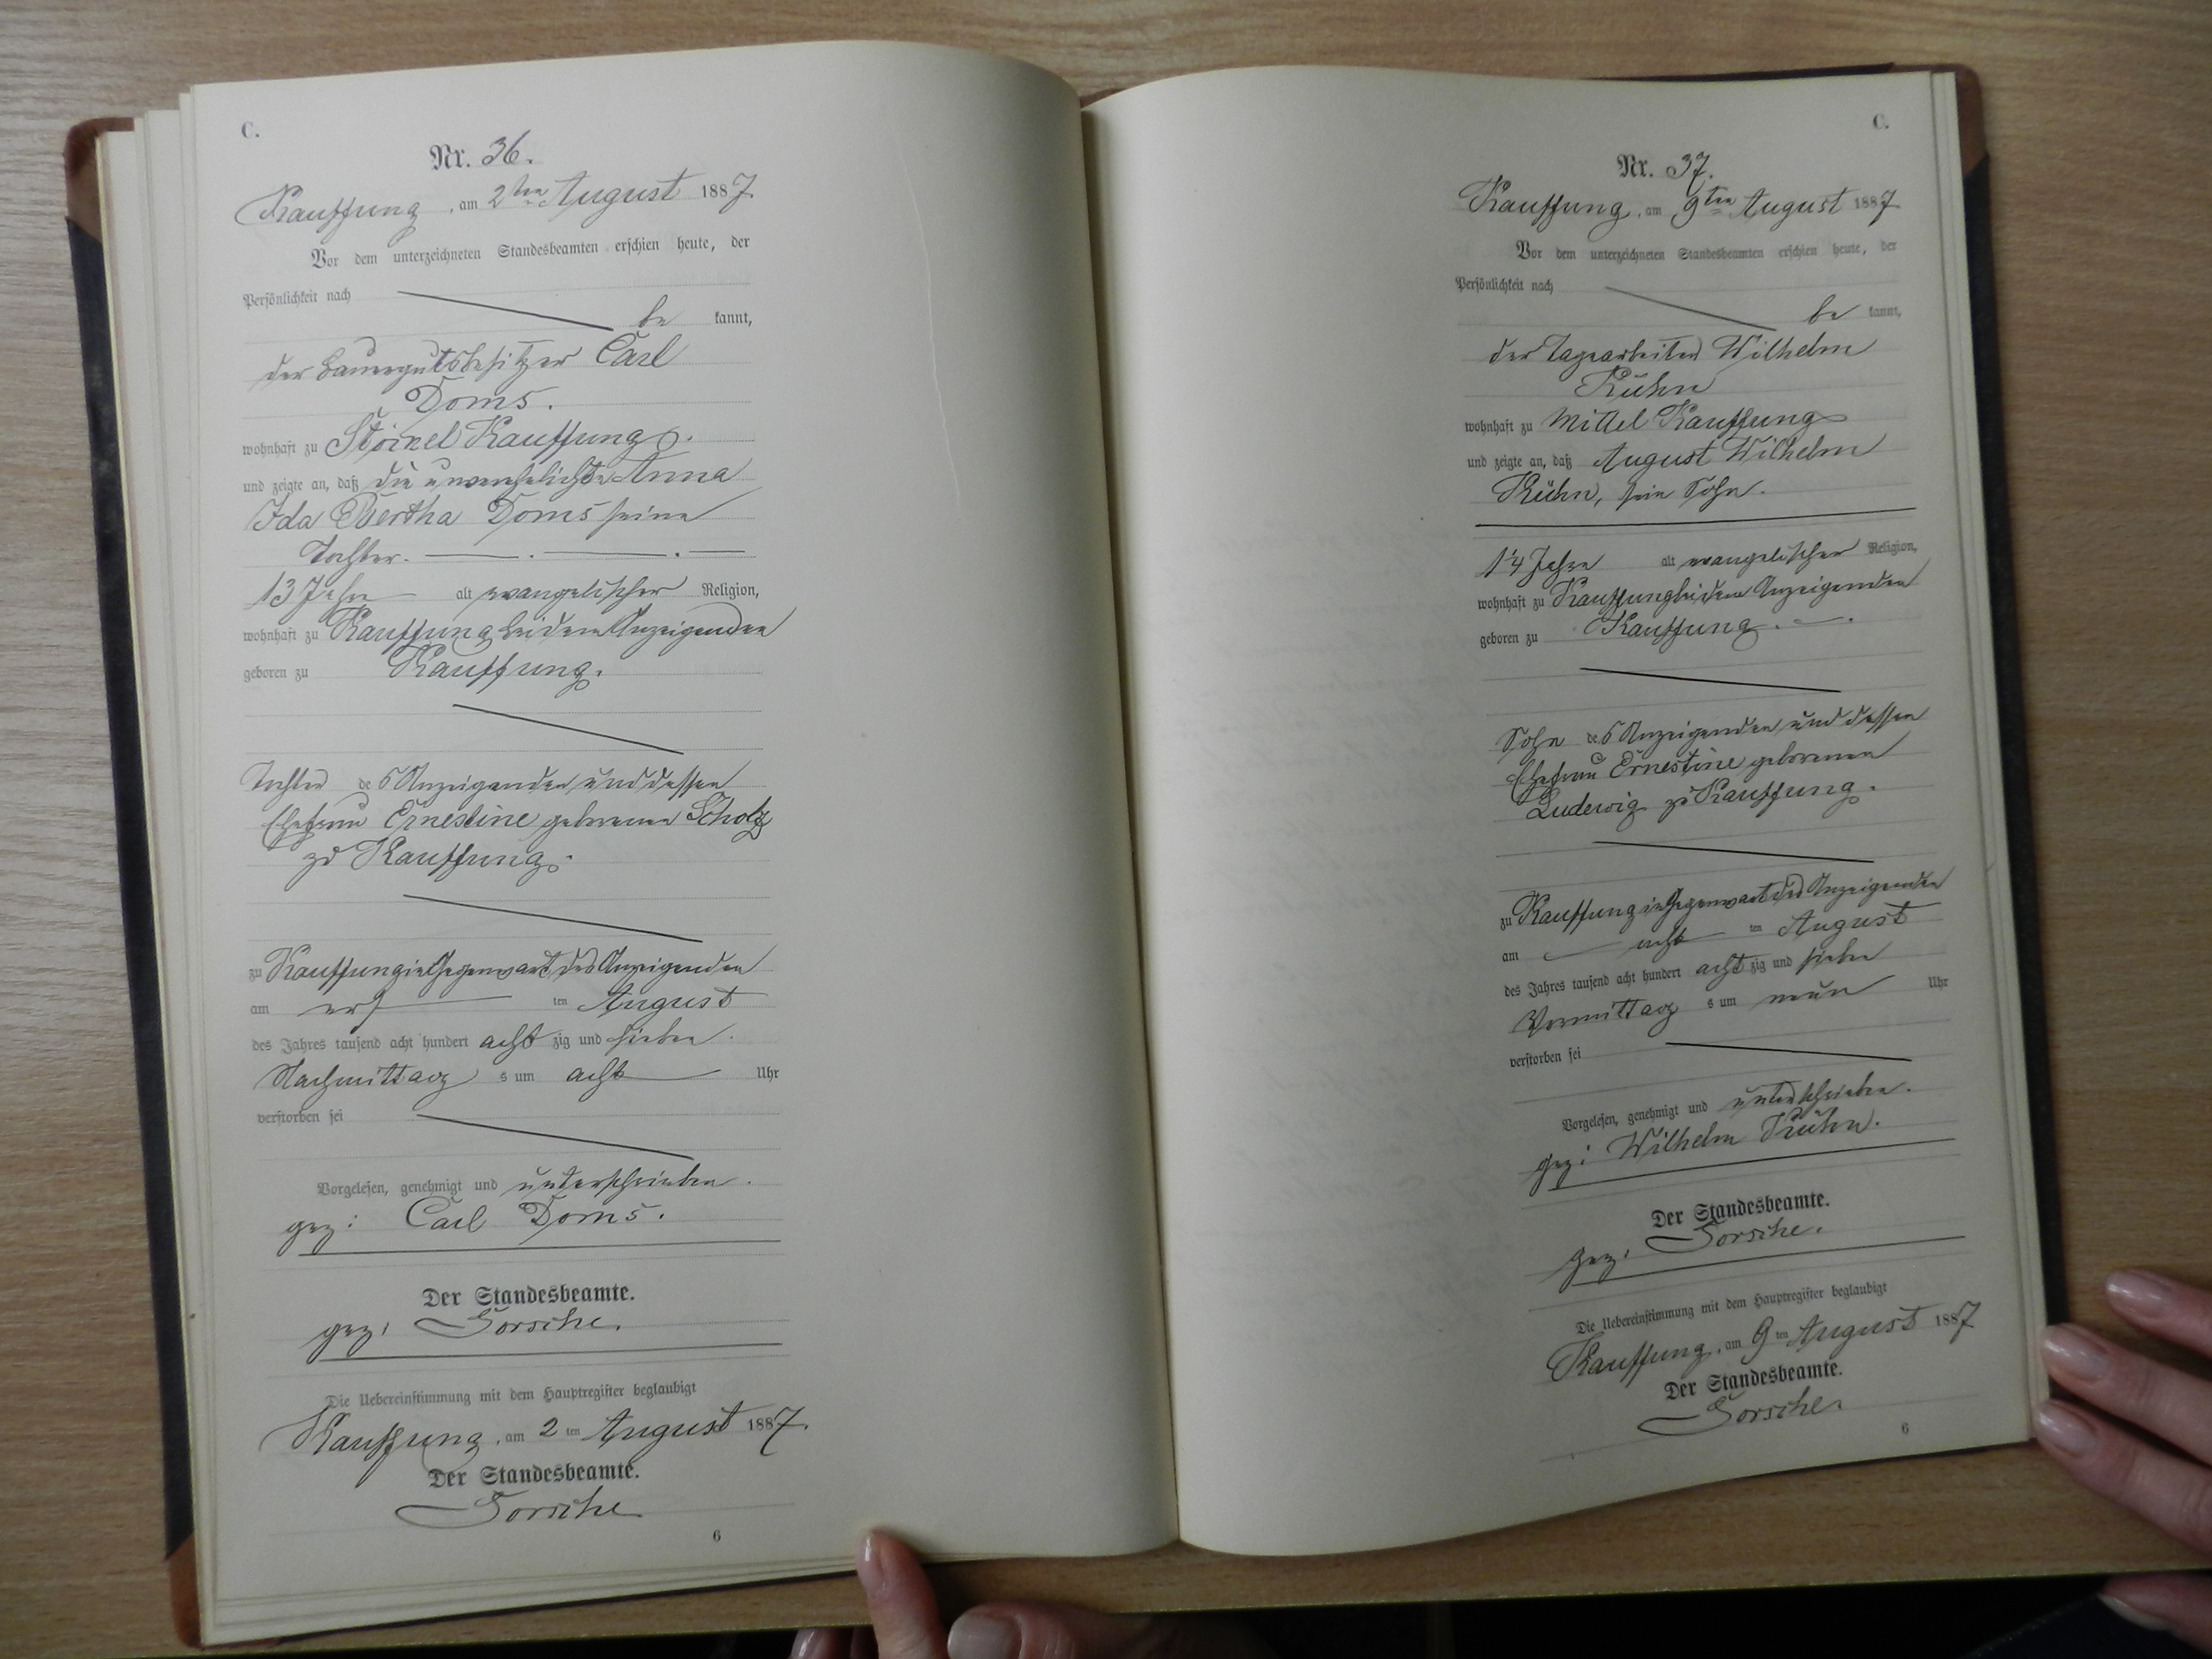 C.
Nr. 36.
Kauffung, am 2ten August 1887.
Vor dem unterzeichneten Standesbeamten erschien heute, der
Persönlichkeit nach
be kannt,
der Bauergutsbesitzer Carl
Doms.
wohnhaft zu Kauffung.
und zeigte an, daß die unverehelichte Anna
Ida Bertha Doms seine
Tochter.
13 Jahre alt evangelischer Religion,
wohnhaft zu Kauffung bei dem Anzeigenden
geboren zu Kauffung.
Tochter des Anzeigenden und dessen
Ehefrau Ernestine geborenen Scholz
zu Kauffung.
zu Kauffung in Gegenwart des Anzeigenden
am ersten August
des Jahres tausend acht hundert achtzig und sieben.
Nachmittags um acht Uhr
verstorben sei
Vorgelesen, genehmigt und unterschrieben.
gez: Carl Doms.
Der Standesbeamte.
gez. Gorsche.
Die Uebereinstimmung mit dem Hauptregister beglaubigt
Kauffung, am 2ten August 1887.
Der Standesbeamte.
Gorsche
6
C.
Nr. 37.
Kauffung, am 9ten August 1887.
Vor dem unterzeichneten Standesbeamten erschien heute, der
Persönlichkeit nach
be kannt,
der Tagearbeiter Wilhelm
Kühn
wohnhaft zu Mittel Kauffung
und zeigte an, daß August Wilhelm
Kühn, sein Sohn.
14 Jahre alt evangelischer Religion,
wohnhaft zu Kauffung bei dem Anzeigenden
geboren zu Kauffung.
Sohn des Anzeigenden und dessen
Ehefrau Ernestine geborenen
Ludewig zu Kauffung.
zu Kauffung in Gegenwart des Anzeigenden
am achten August
des Jahres tausend acht hundert achtzig und sieben
Vormittags um neun Uhr
verstorben sei
Vorgelesen, genehmigt und unterschrieben.
gez: Wilhelm Kühn.
Der Standesbeamte.
gez. Gorsche.
Die Uebereinstimmung mit dem Hauptregister beglaubigt
Kauffung, am 9ten August 1887
Der Standesbeamte.
Gorsche.
6